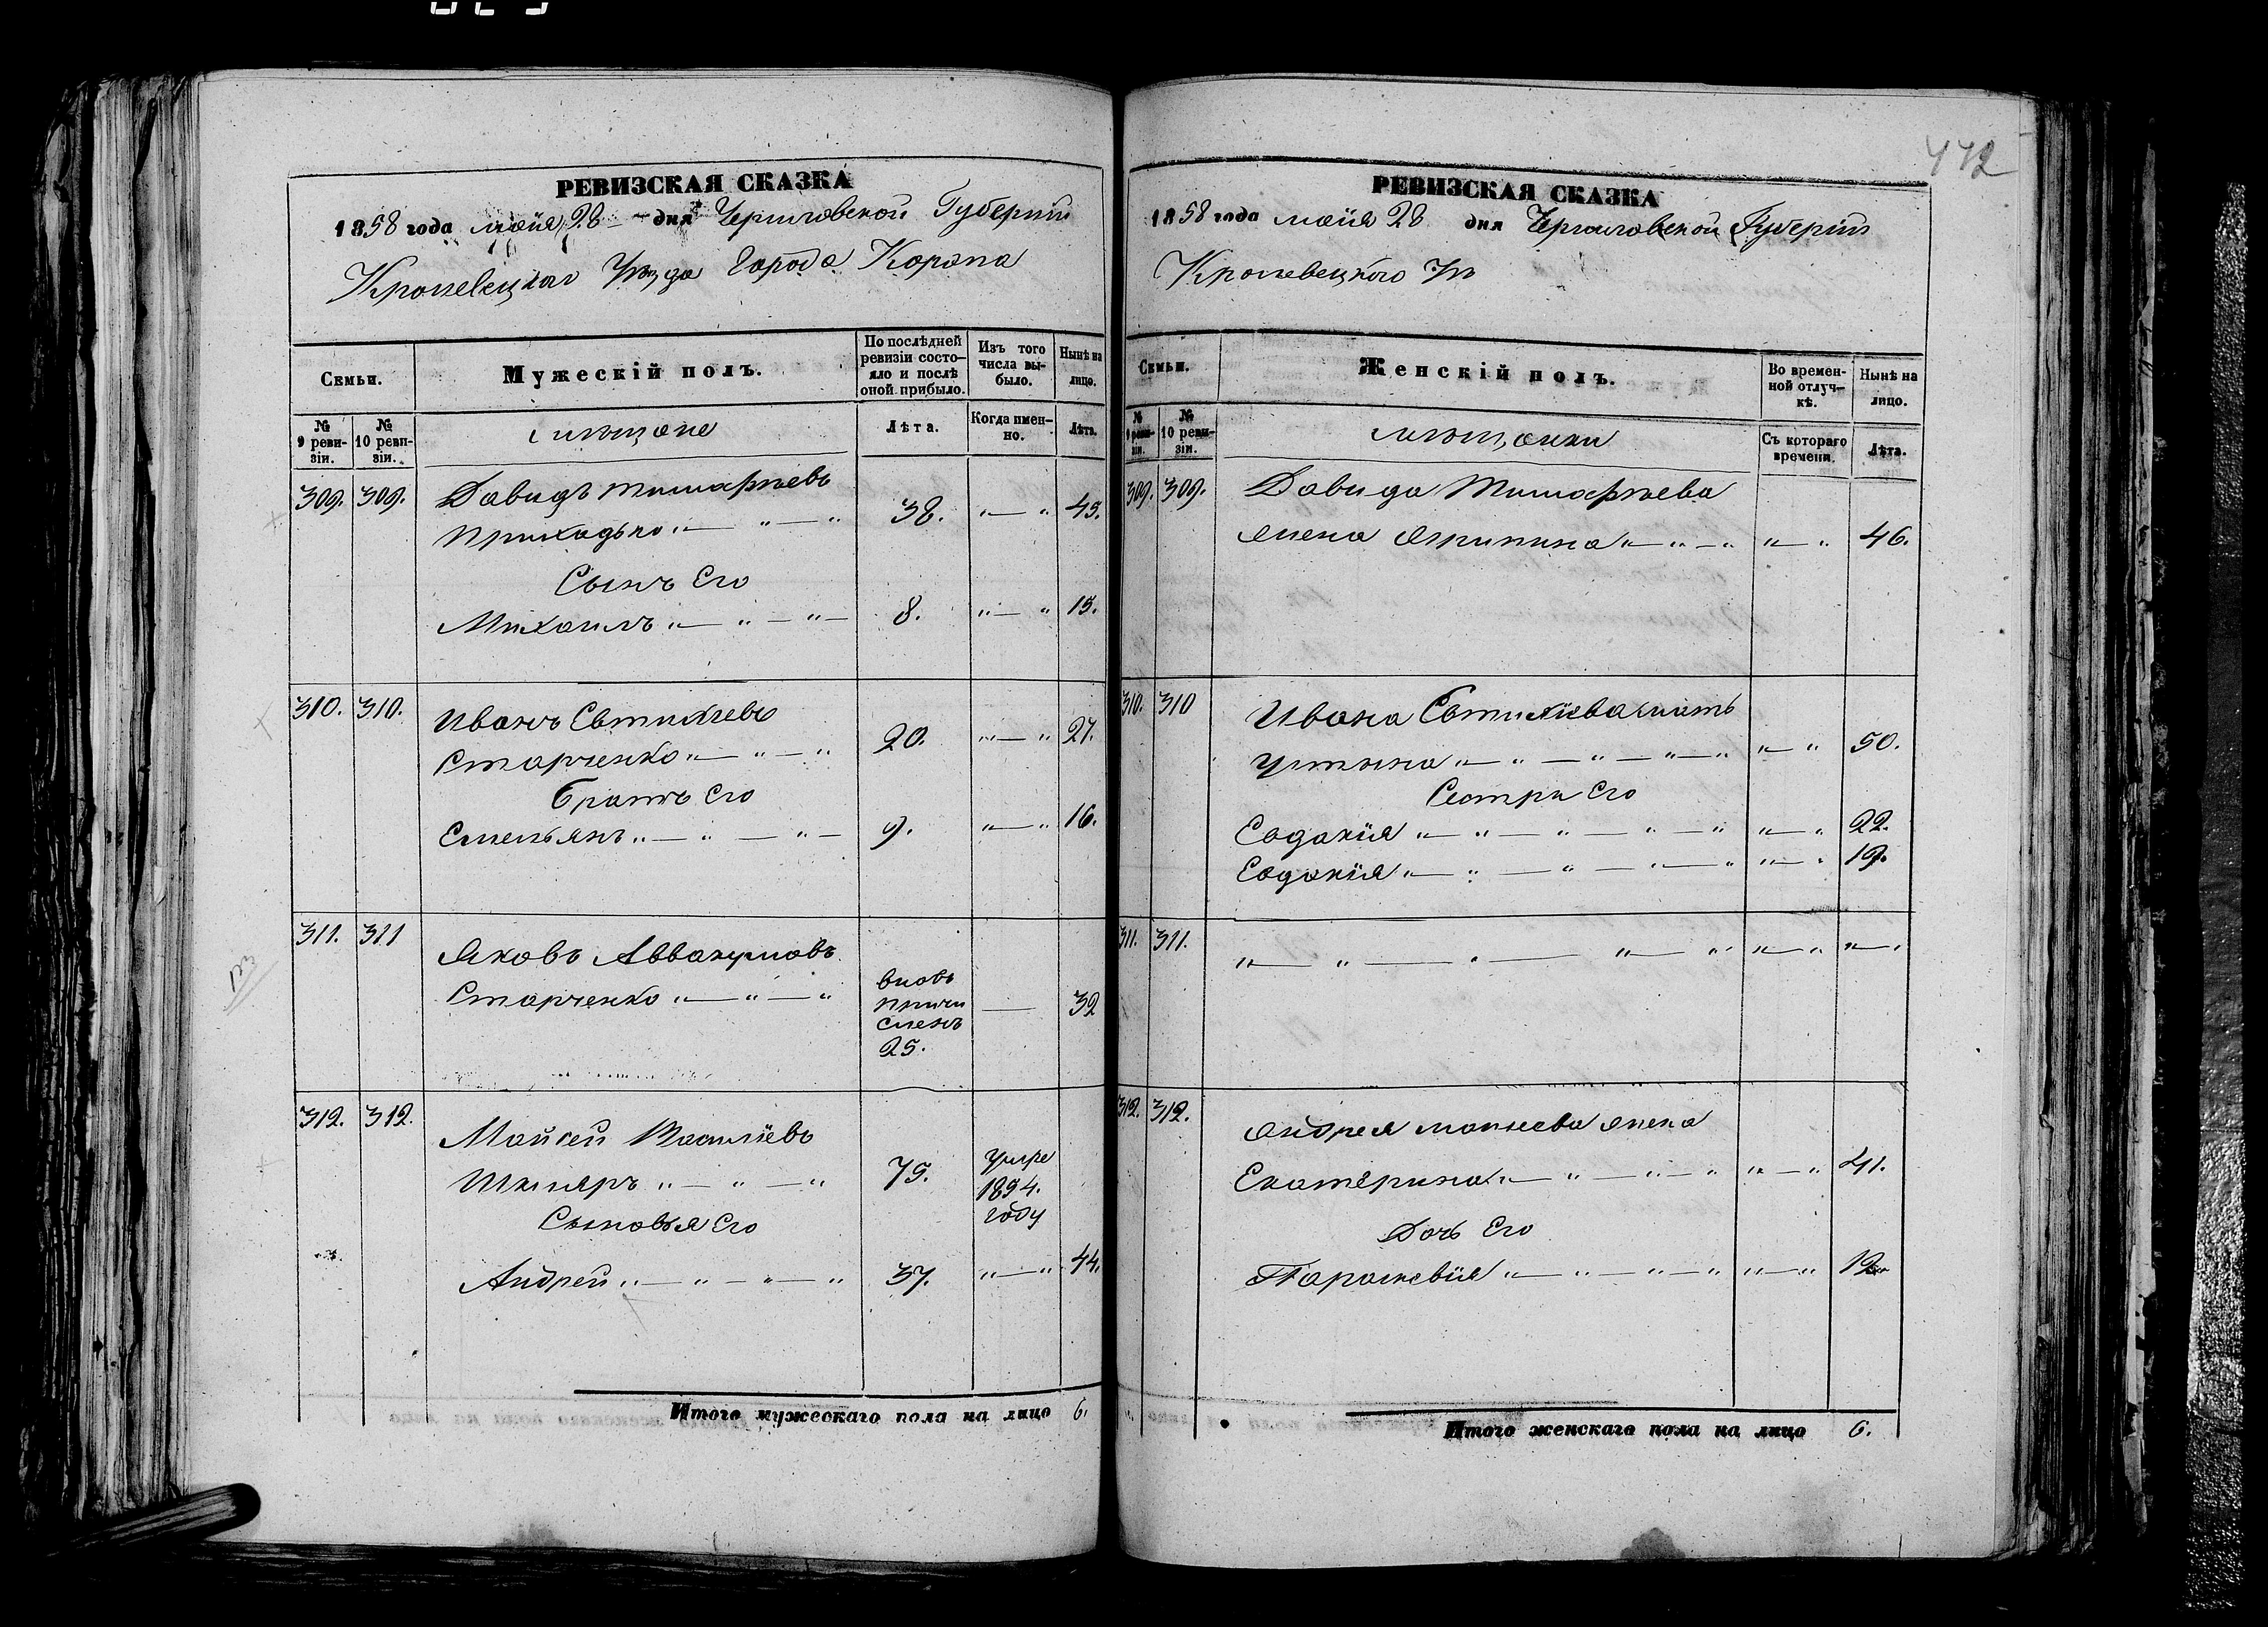 442
РЕВИЗСКАЯ СКАЗКА
1858 года маія 28 дня Черниговской Губерніи
Кролевецкаго Уѣзда Города Коропа
Семьи.
Мужескій полъ.
По послѣдней ревизіи состо-
яло и послѣ
оной прибыло.
Изъ того
числа вы-
было.
Нынѣ на
лицо.
№
9 реви-
зіи.
№
10 реви-
зіи.
мѣщане
Лѣта.
Когда имен-
но.
Лѣта.
309. 309. Давидъ Тимофѣевъ
Приходько „ — „ — „ 38. „ — „ 45.
Сынъ Его
Михаилъ „ — „ — „ — 8. „ — „ 15.
310. 310. Иванъ Евтихіевъ
Старченко „ — „ — „ 20. „ — „ 27.
Братъ Его
Емельянъ „ — „ — „ — 9. „ — „ 16.
311. 311 Яковъ Аввакумовъ
Старченко „ — „ — „ вновь
причи
сленъ
25. — 32
312. 312. Мойсей Василіевъ
Шкляръ „ — „ — „ 75. Умре
1854.
году
Сыновья Его
Андрей „ — „ — „ — „ 37. „ — „ 44.
Итого мужескаго пола на лицо 6.
РЕВИЗСКАЯ СКАЗКА
1858 года маія 28 дня Черниговской Губерніи
Кролевецкого Уѣ
Семьи.
Женскій полъ.
Во времен-
ной отлуч-
кѣ.
Нынѣ на
лицо.
№
9 реви-
зіи.
№
10 реви-
зіи.
мѣщанки
Съ котораго
времени.
Лѣта.
309. 309. Давида Тимофѣева
жена Агрипина „ — „ — „ „ — „ 46.
310. 310 Ивана Евтихіева мать
Устина „ — „ — „ — „ — „ „ — „ 50.
Сестры Его
Евдокія „ — „ — „ — „ — „ „ — „ 22.
Евдокія „ — „ — „ — „ — „ „ — „ 19.
311. 311. „ — „ — „ — „ — „ „ — „ „ — „
312. 312. Андрея Моисеева жена
Екатерина „ — „ — „ — „ „ — „ 41.
Дочь Его
Параскевія „ — „ — „ — „ „ — „ 12
Итого женскаго пола на лицо 6.